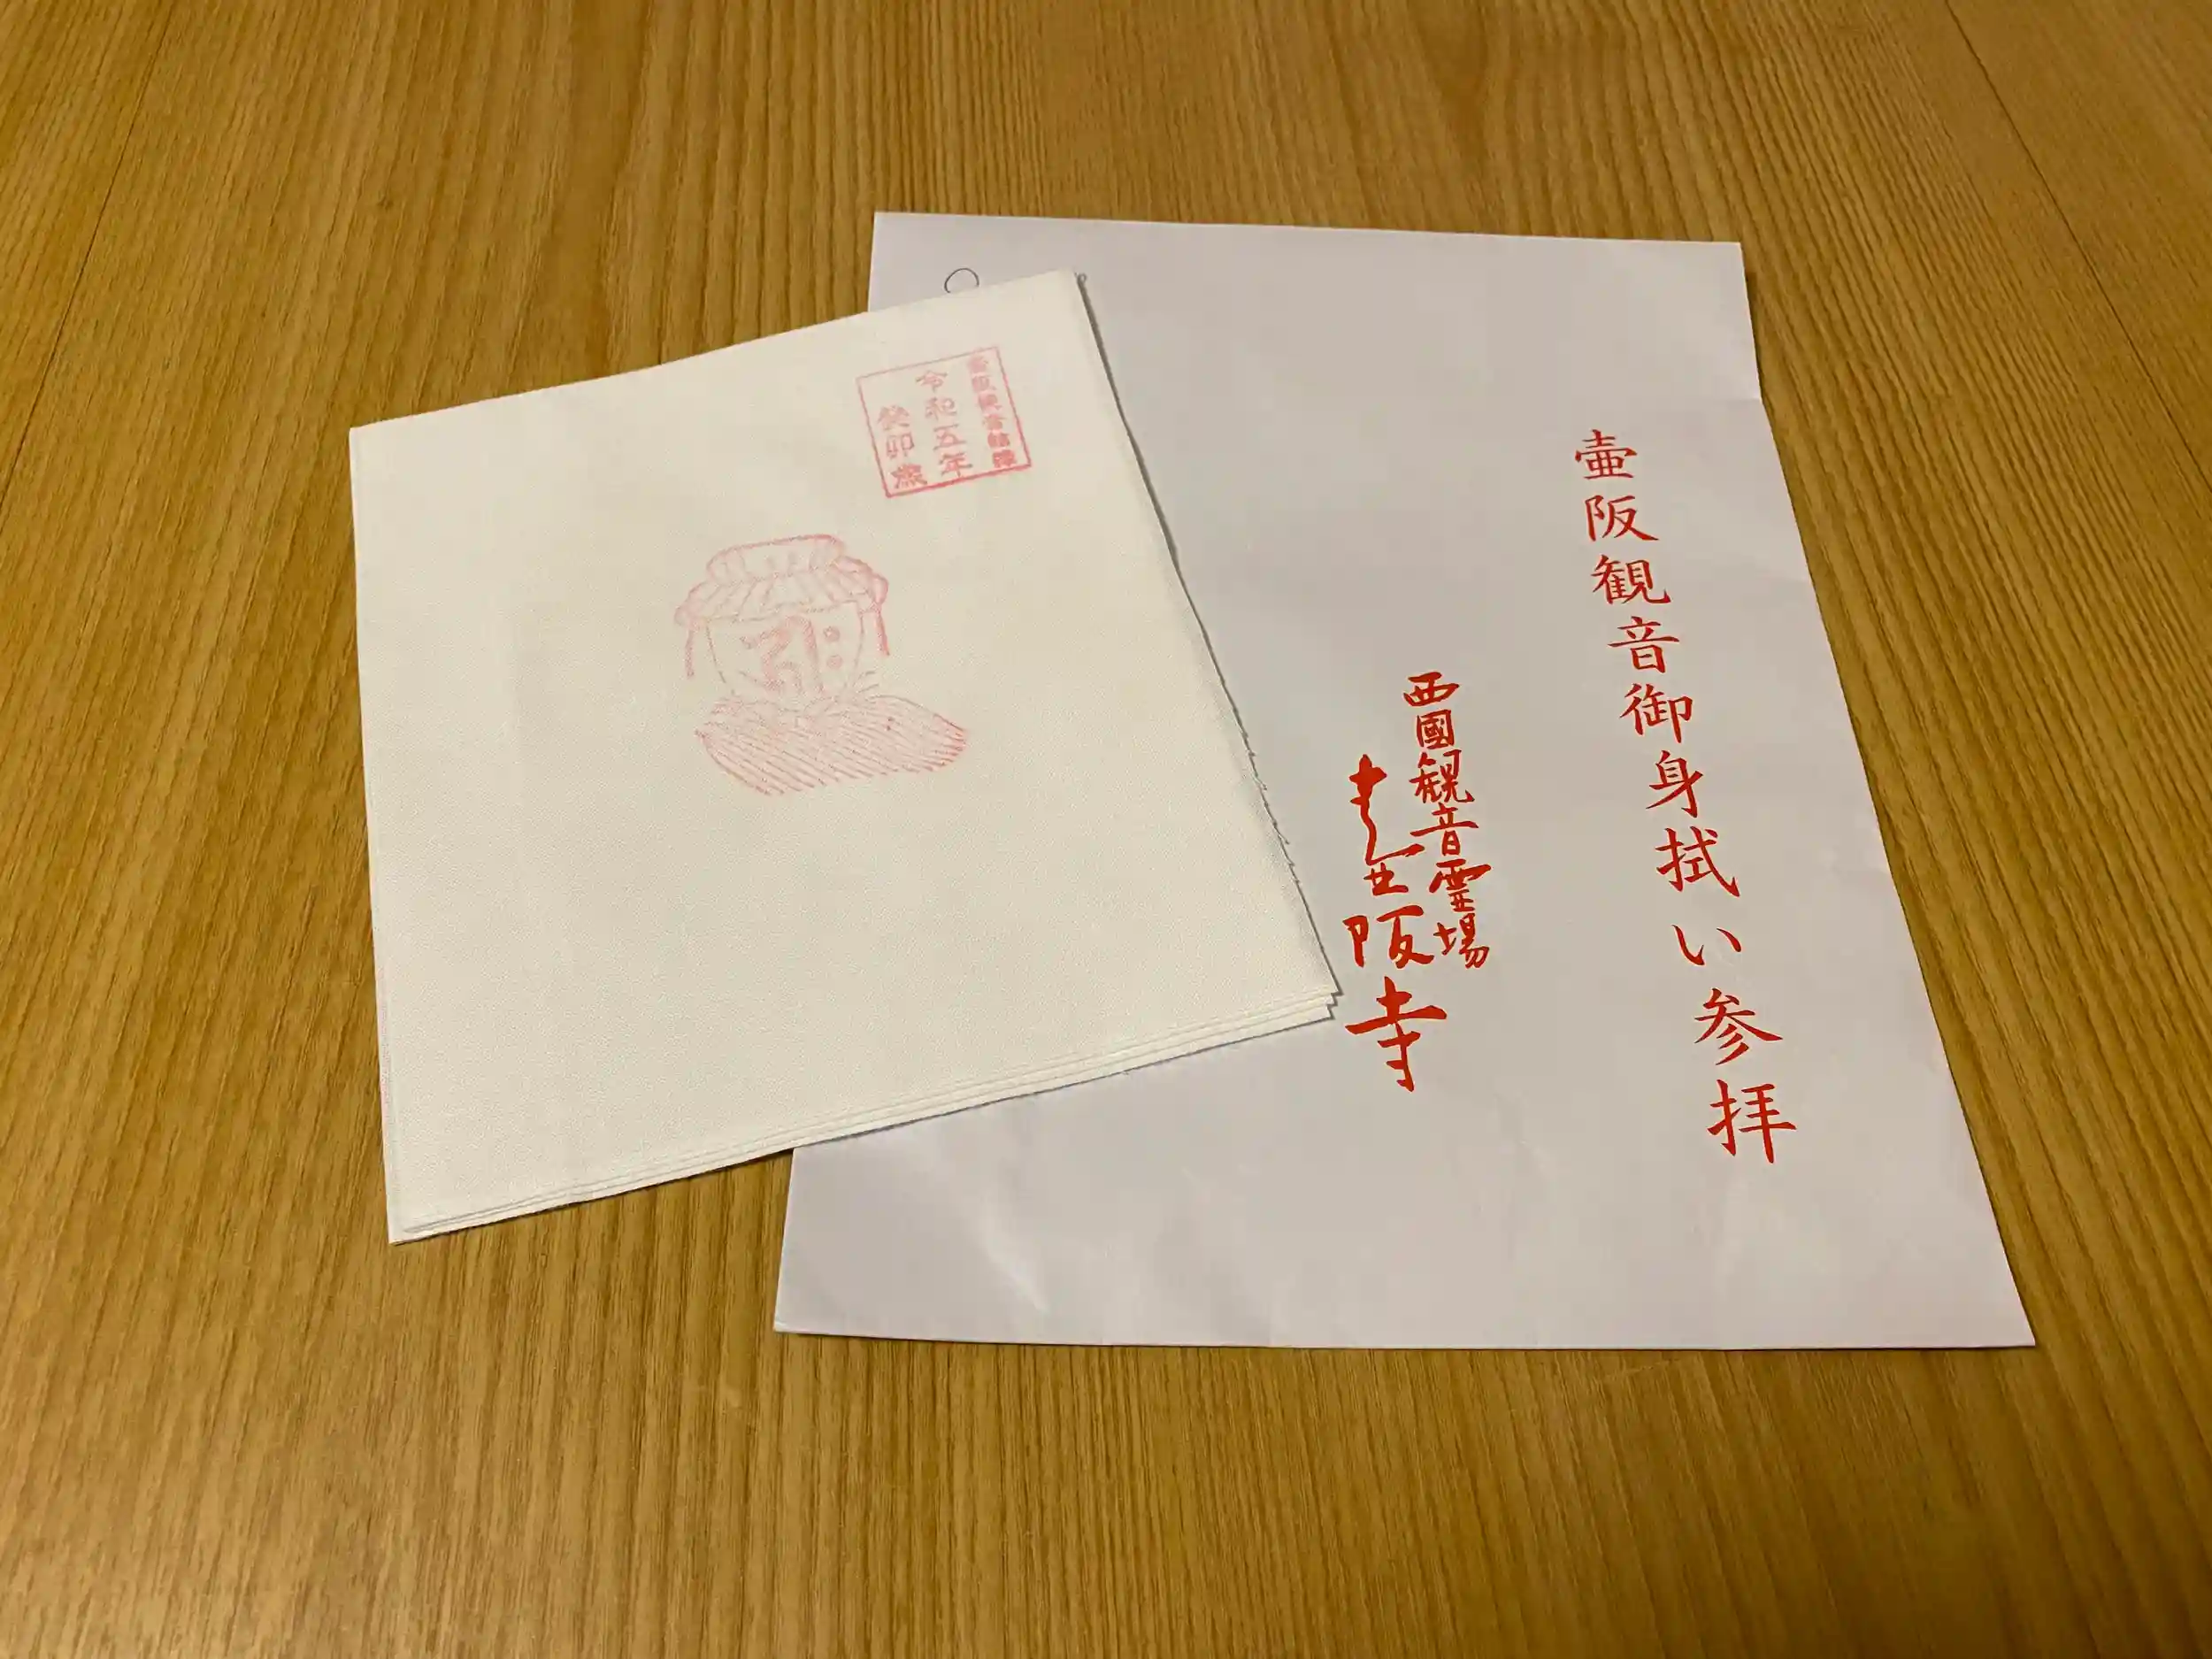 壷阪観音御身拭い参拝
西國観音霊場
壷阪寺
壷阪観音結縁
令和五年
癸卯歳